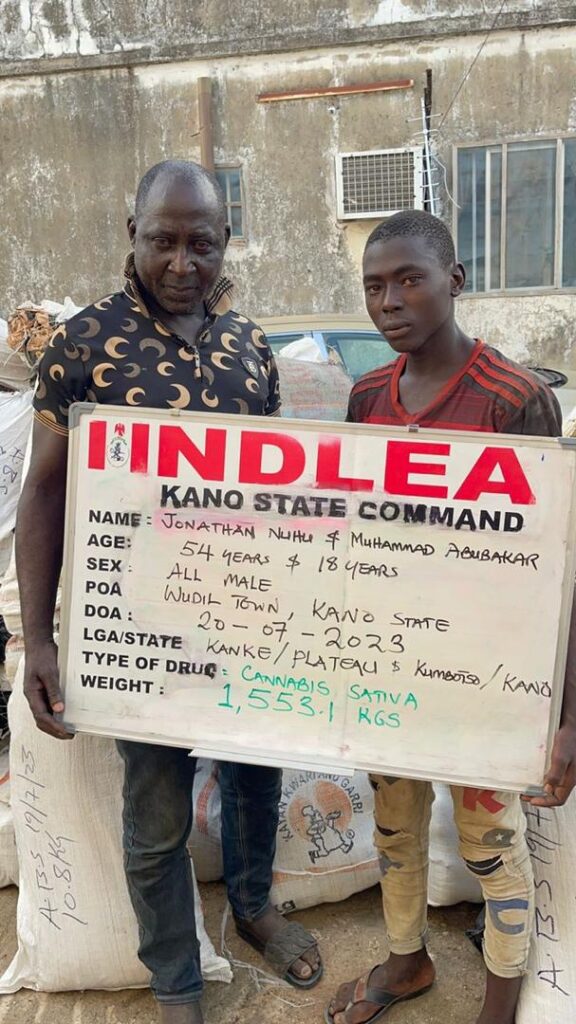 NDLEA
KANO STATE COMMAND
NAME: JONATHAN NUHU & MUHAMMAD ABUBAKAR
AGE: 54 YEARS & 18 YEARS
SEX: ALL MALE
POA WUDIL TOWN, KANO STATE
DOA: 20-07-2023
LGA/STATE KANKE/PLATEAU & KUMBOTSO/KANO
TYPE OF DRUG: CANNABIS SATIVA
WEIGHT: 1,553.1 KGS
A-B-S 19/7/23
10.8KG
KWARI AND GARRI
A-B-S 19/7